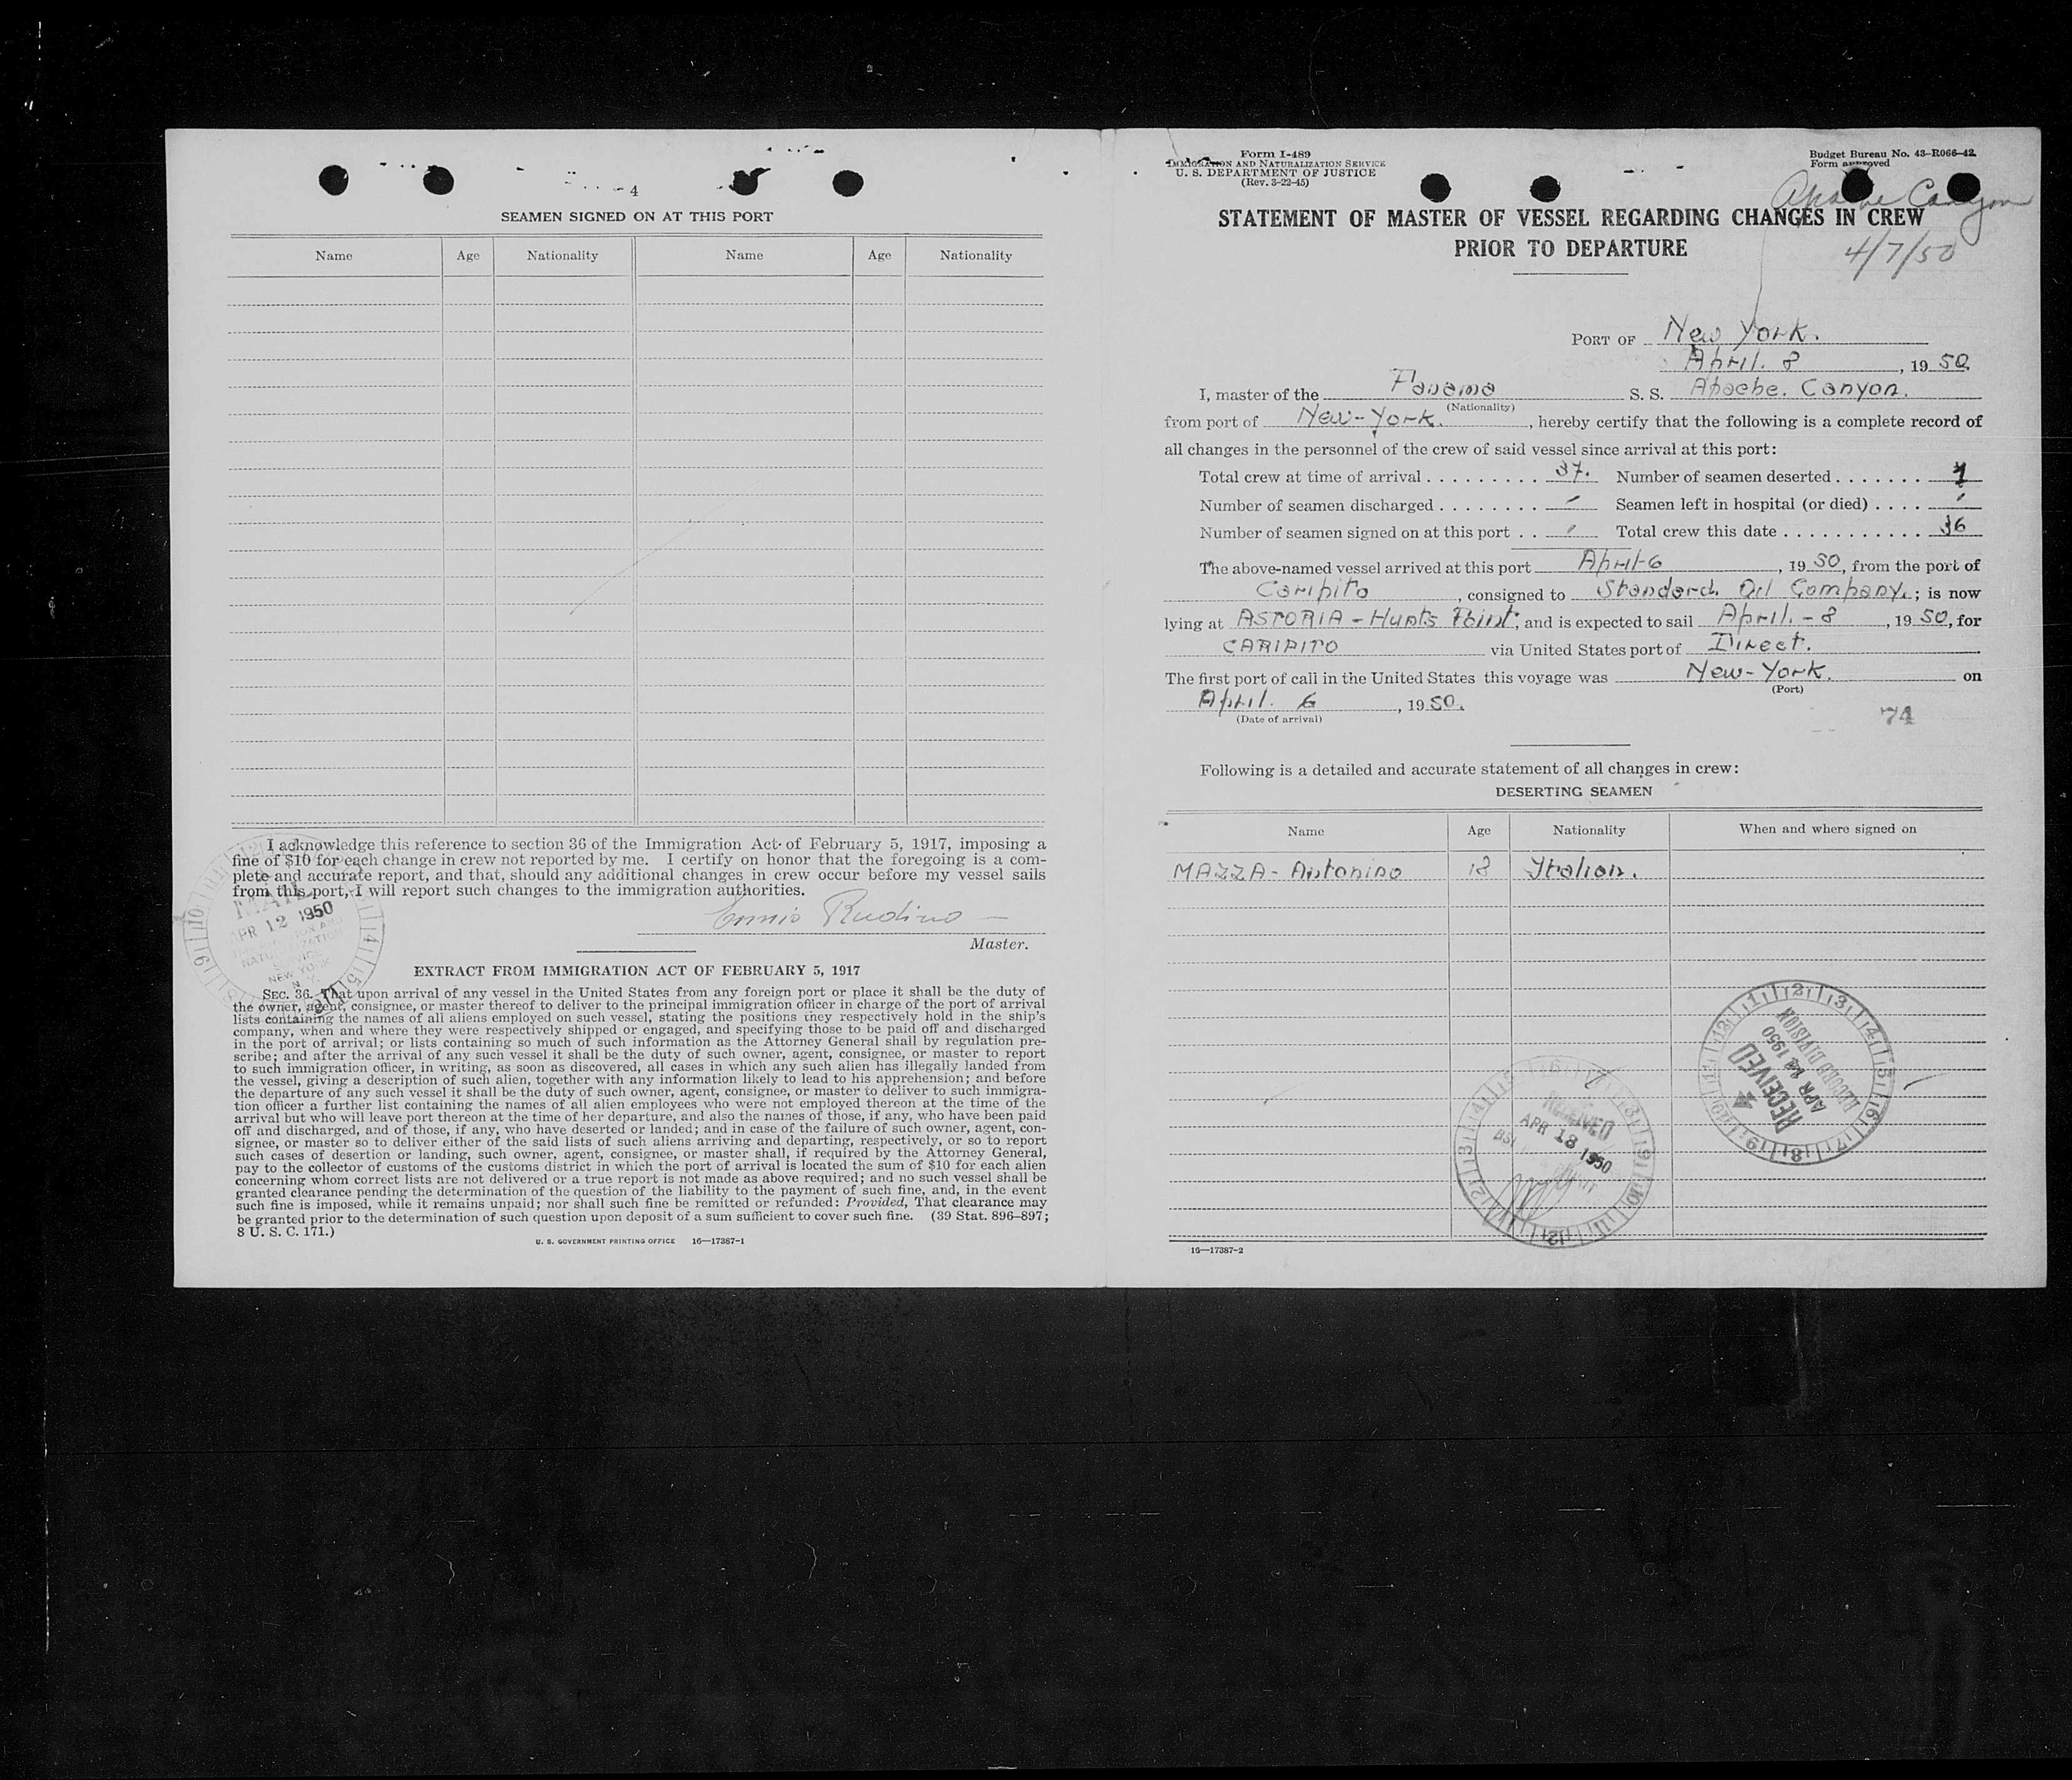 4
SEAMEN SIGNED ON AT THIS PORT
Name Age Nationality Name Age Nationality
I acknowledge this reference to section 36 of the Immigration Act of February 5, 1917, imposing a
fine of $10 for each change in crew not reported by me. I certify on honor that the foregoing is a com-
plete and accurate report, and that, should any additional changes in crew occur before my vessel sails
from this port, I will report such changes to the immigration authorities.
Ennio Rudino
Master.
APR 12 1950
NEW YORK
EXTRACT FROM IMMIGRATION ACT OF FEBRUARY 5, 1917
SEC. 36. That upon arrival of any vessel in the United States from any foreign port or place it shall be the duty of
the owner, agent, consignee, or master thereof to deliver to the principal immigration officer in charge of the port of arrival
lists containing the names of all aliens employed on such vessel, stating the positions they respectively hold in the ship's
company, when and where they were respectively shipped or engaged, and specifying those to be paid off and discharged
in the port of arrival; or lists containing so much of such information as the Attorney General shall by regulation pre-
scribe; and after the arrival of any such vessel it shall be the duty of such owner, agent, consignee, or master to report
to such immigration officer, in writing, as soon as discovered, all cases in which any such alien has illegally landed from
the vessel, giving a description of such alien, together with any information likely to lead to his apprehension; and before
the departure of any such vessel it shall be the duty of such owner, agent, consignee, or master to deliver to such immigra-
tion officer a further list containing the names of all alien employees who were not employed thereon at the time of the
arrival but who will leave port thereon at the time of her departure, and also the names of those, if any, who have been paid
off and discharged, and of those, if any, who have deserted or landed; and in case of the failure of such owner, agent, con-
signee, or master so to deliver either of the said lists of such aliens arriving and departing, respectively, or so to report
such cases of desertion or landing, such owner, agent, consignee, or master shall, if required by the Attorney General,
pay to the collector of customs of the customs district in which the port of arrival is located the sum of $10 for each alien
concerning whom correct lists are not delivered or a true report is not made as above required; and no such vessel shall be
granted clearance pending the determination of the question of the liability to the payment of such fine, and, in the event
such fine is imposed, while it remains unpaid; nor shall such fine be remitted or refunded: Provided, That clearance may
be granted prior to the determination of such question upon deposit of a sum sufficient to cover such fine. (39 Stat. 896–897;
8 U. S. C. 171.)
U. S. GOVERNMENT PRINTING OFFICE 16—17387-1
Form I-489
IMMIGRATION AND NATURALIZATION SERVICE
U. S. DEPARTMENT OF JUSTICE
(Rev. 3-22-45)
Budget Bureau No. 43-R066-42.
Form approved
Apache Canyon
STATEMENT OF MASTER OF VESSEL REGARDING CHANGES IN CREW
PRIOR TO DEPARTURE
4/7/50
PORT OF New York.
April. 8, 1950.
I, master of the Panama S. S. Apache. Canyon.
(Nationality)
from port of New-York., hereby certify that the following is a complete record of
all changes in the personnel of the crew of said vessel since arrival at this port:
Total crew at time of arrival 37. Number of seamen deserted 1
Number of seamen discharged / Seamen left in hospital (or died) /
Number of seamen signed on at this port / Total crew this date 36
The above-named vessel arrived at this port April-6, 1950, from the port of
Caripito, consigned to Standard. Oil Company.; is now
lying at ASTORIA - Hunts Point, and is expected to sail April. - 8, 1950, for
CARIPITO via United States port of Direct.
The first port of call in the United States this voyage was New-York. on
(Port)
April. 6, 1950.
(Date of arrival)
74
Following is a detailed and accurate statement of all changes in crew:
DESERTING SEAMEN
Name Age Nationality When and where signed on
MAZZA - Antonino 18 Italian.
RECEIVED
APR 1950
RECORD DIVISION
RECEIVED
APR 18 1950
16—17387-2